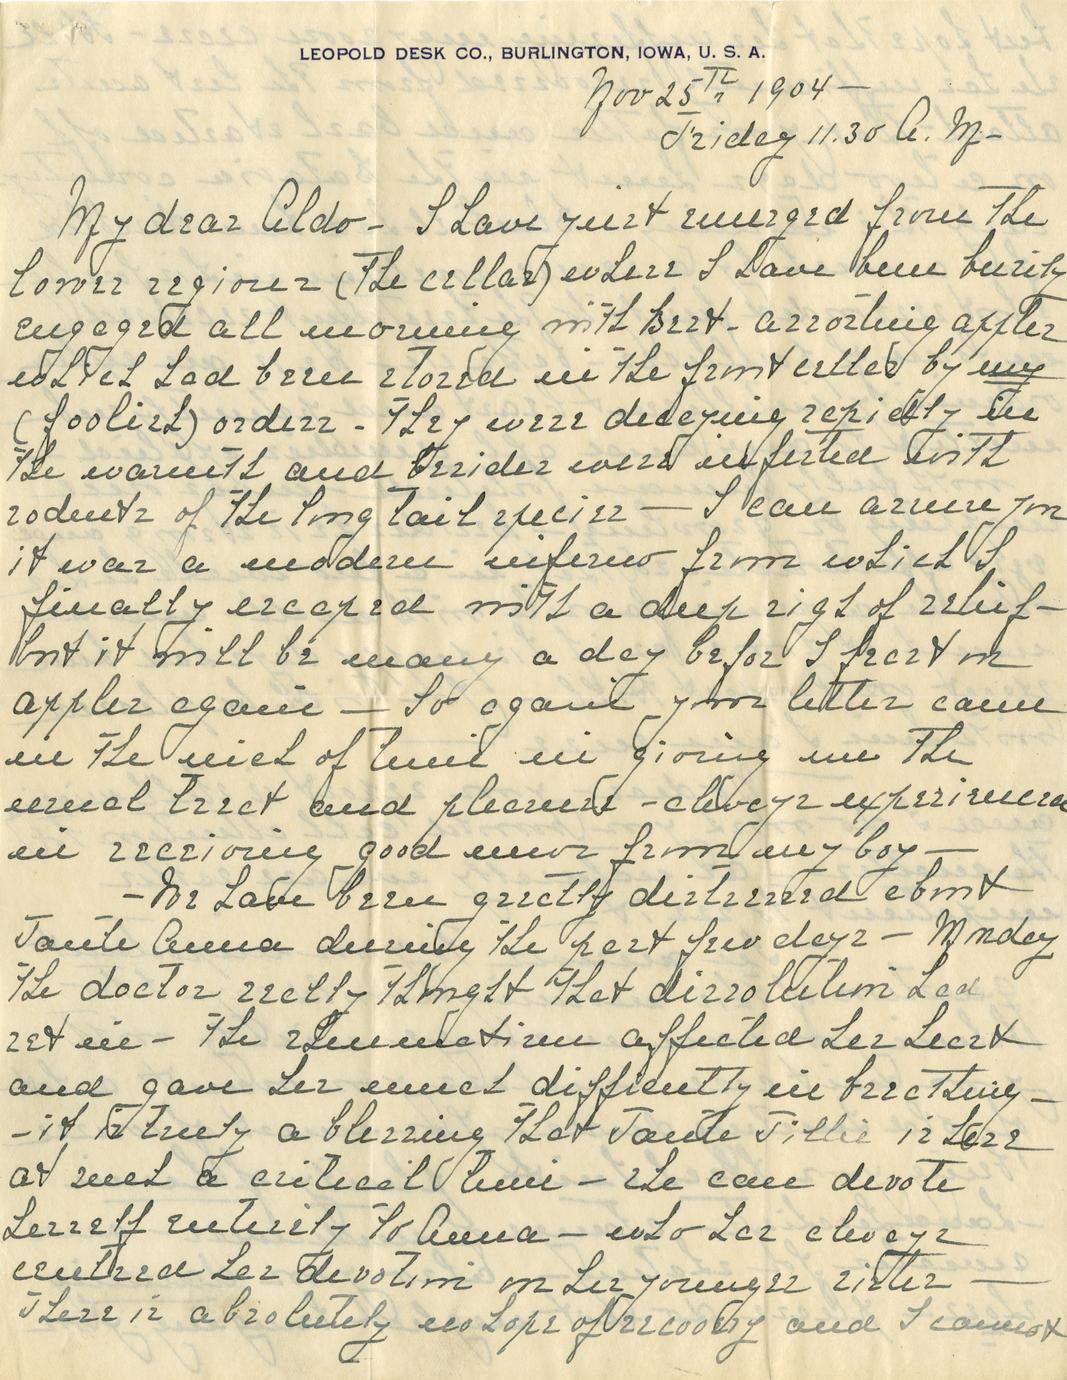 LEOPOLD DESK CO., BURLINGTON, IOWA, U. S. A.
Nov 25th, 1904 —
Friday 11.30 A. M —
My dear Aldo - I have just emerged from the
lower regions (the cellar) where I have been busily
engaged all morning with Bert - assorting apples
which had been stored in the front cellar by my
(foolish) orders - They were decaying rapidly in
the warmth and besides were infested with
rodents of the long tail species — I can assure you
it was a modern inferno from which I
finally escaped with a deep sigh of relief -
but it will be many a day befor I feast on
apples again — So again your letter came
in the nick of time in giving me the
usual treat and pleasure - always experienced
in receiving good news from my boy —
- We have been greatly distressed about
Tante Anna during the past few days — Monday
the doctor really thought that dissolution had
set in - The rheumatism affected her heart
and gave her much difficulty in breathing -
- it is truly a blessing that Tante Tillie is here
at such a critical time - she can devote
herself entirely to Anna - who has always
centred her devotion on her younger sister —
There is absolutely no hope of recovery and I cannot